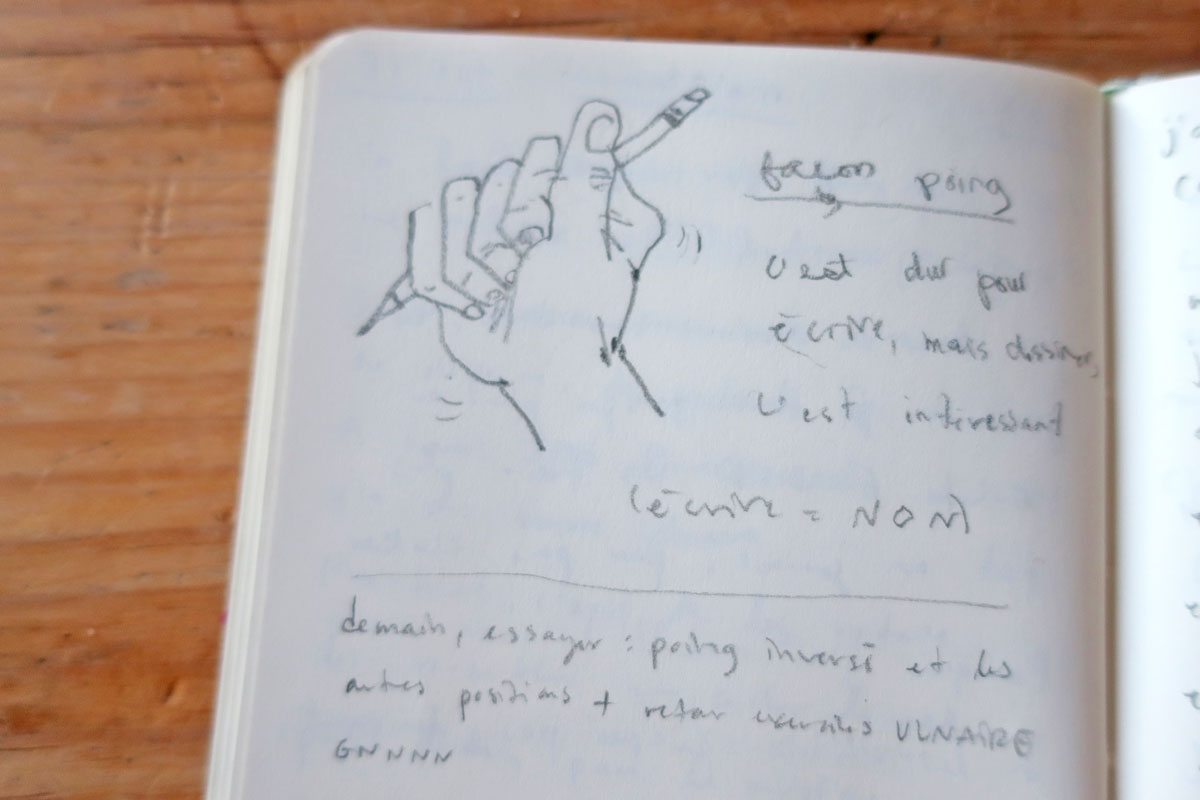 façon poing
c'est dur pour
écrire, mais dessiner,
c'est intéressant
(écrire = NON)
demain, essayer : poing inversé et les
autres positions + retour exercices ULNAIRE
GNNNN